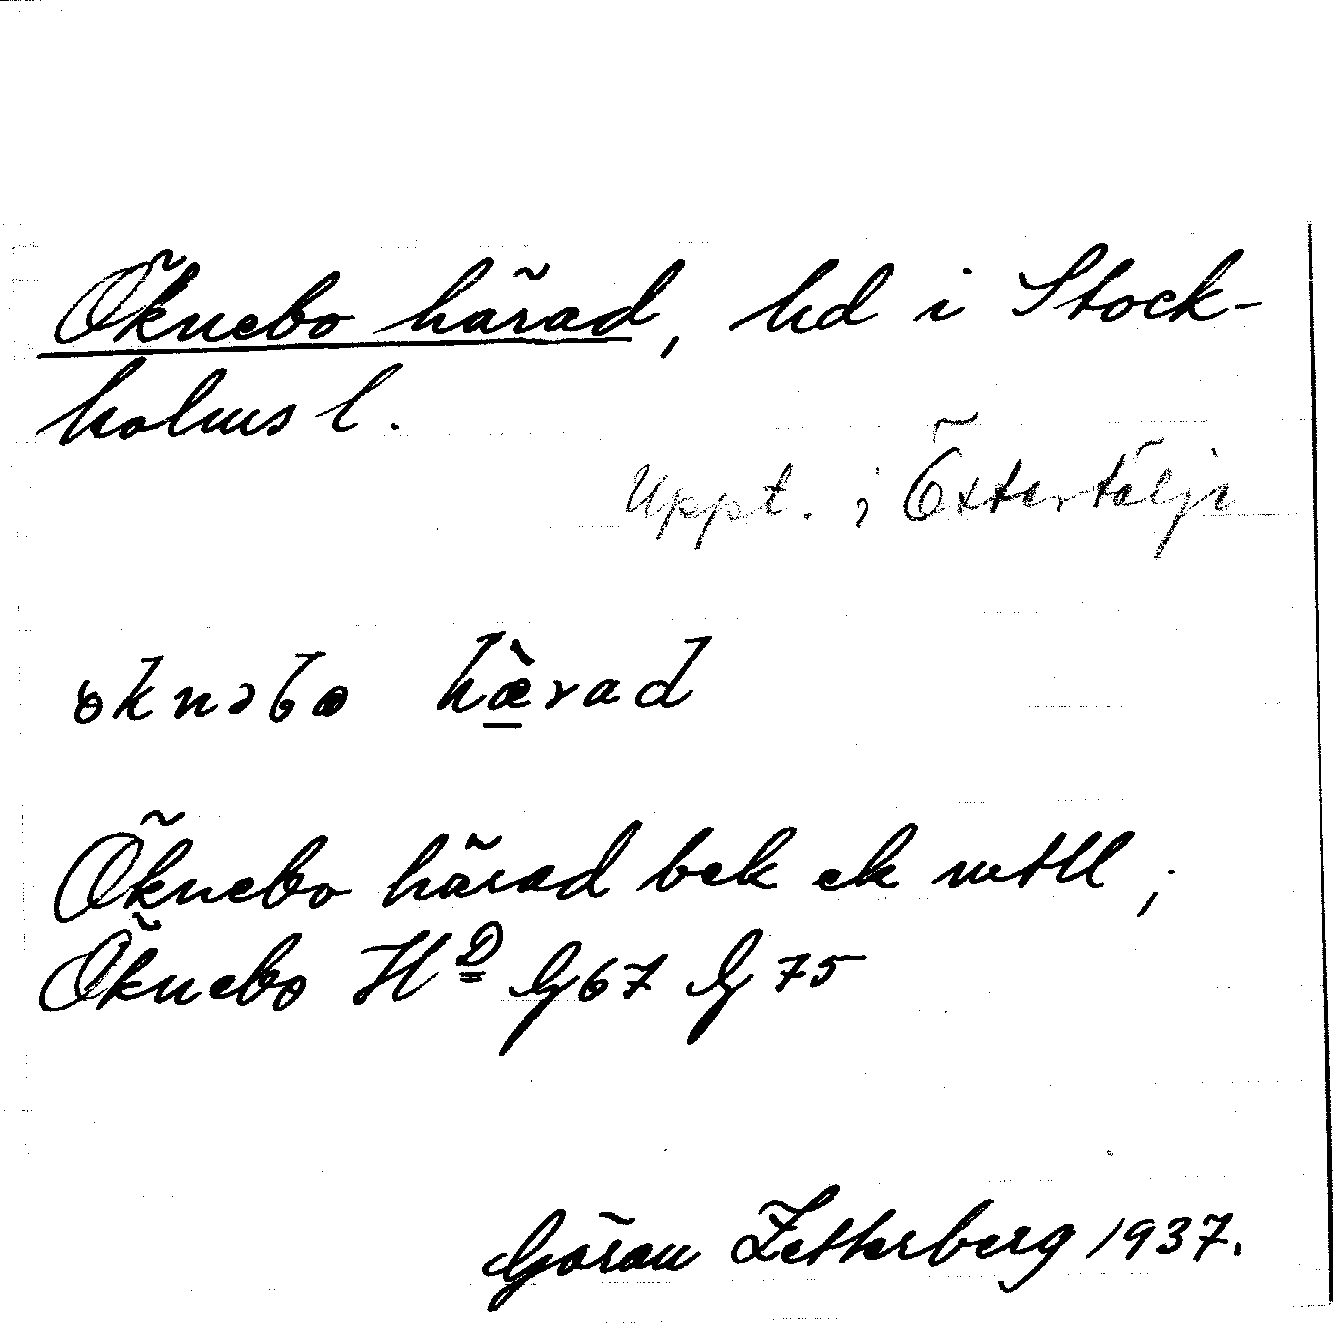 Öknebo härad, hd i Stock-
holms l.
Uppt. i Östertälje
öknəbo hæ̀rad
Öknebo härad bek ek mtll;
Öknebo HD G67 G75
Göran Zetterberg 1937.